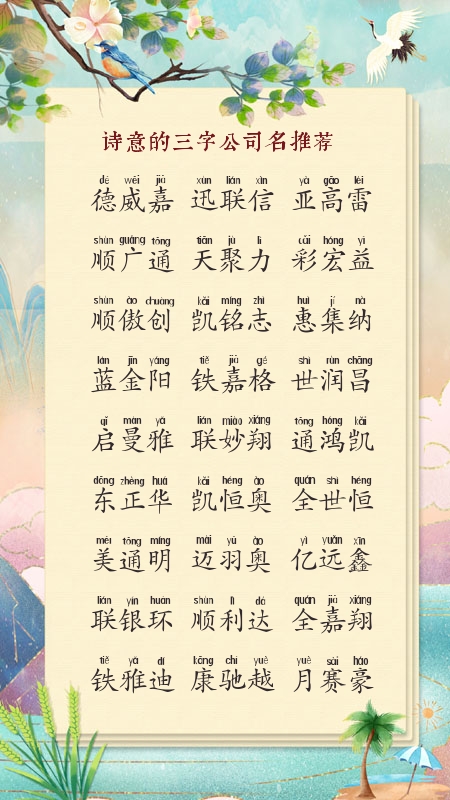 诗意的三字公司名推荐
dé wēi jiā xùn lián xìn yà gāo léi
德威嘉 迅联信 亚高雷
shùn guǎng tōng tiān jù lì cǎi hóng yì
顺广通 天聚力 彩宏益
shùn ào chuàng kǎi míng zhì huì jí nà
顺傲创 凯铭志 惠集纳
lán jīn yáng tiě jiā gé shì rùn chāng
蓝金阳 铁嘉格 世润昌
qǐ màn yǎ lián miào xiáng tōng hóng kǎi
启曼雅 联妙翔 通鸿凯
dōng zhèng huá kǎi héng ào quán shì héng
东正华 凯恒奥 全世恒
měi tōng míng mài yǔ ào yì yuǎn xīn
美通明 迈羽奥 亿远鑫
lián yín huán shùn lì dá quán jiā xiáng
联银环 顺利达 全嘉翔
tiě yǎ dí kāng chí yuè yuè sài háo
铁雅迪 康驰越 月赛豪